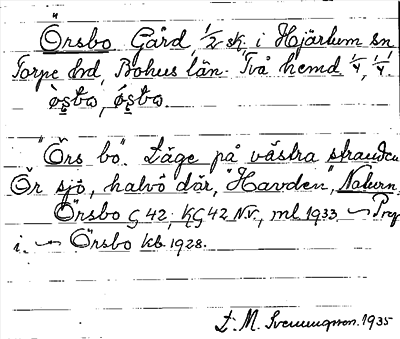 Örsbo Gård, 1/2 sk, i Hjärtum sn
Torpe hd, Bohus län. Två hemd 1/4, 1/4.
"Örs bo". Läge på västra stranden
Ör sjö, halvö där, "Havden", Naturn.
Örsbo G 42, KG 42 N.V., ml 1933 ~ Prep
i. ~ Örsbo kb 1928.
L. M. Svenungsson. 1935